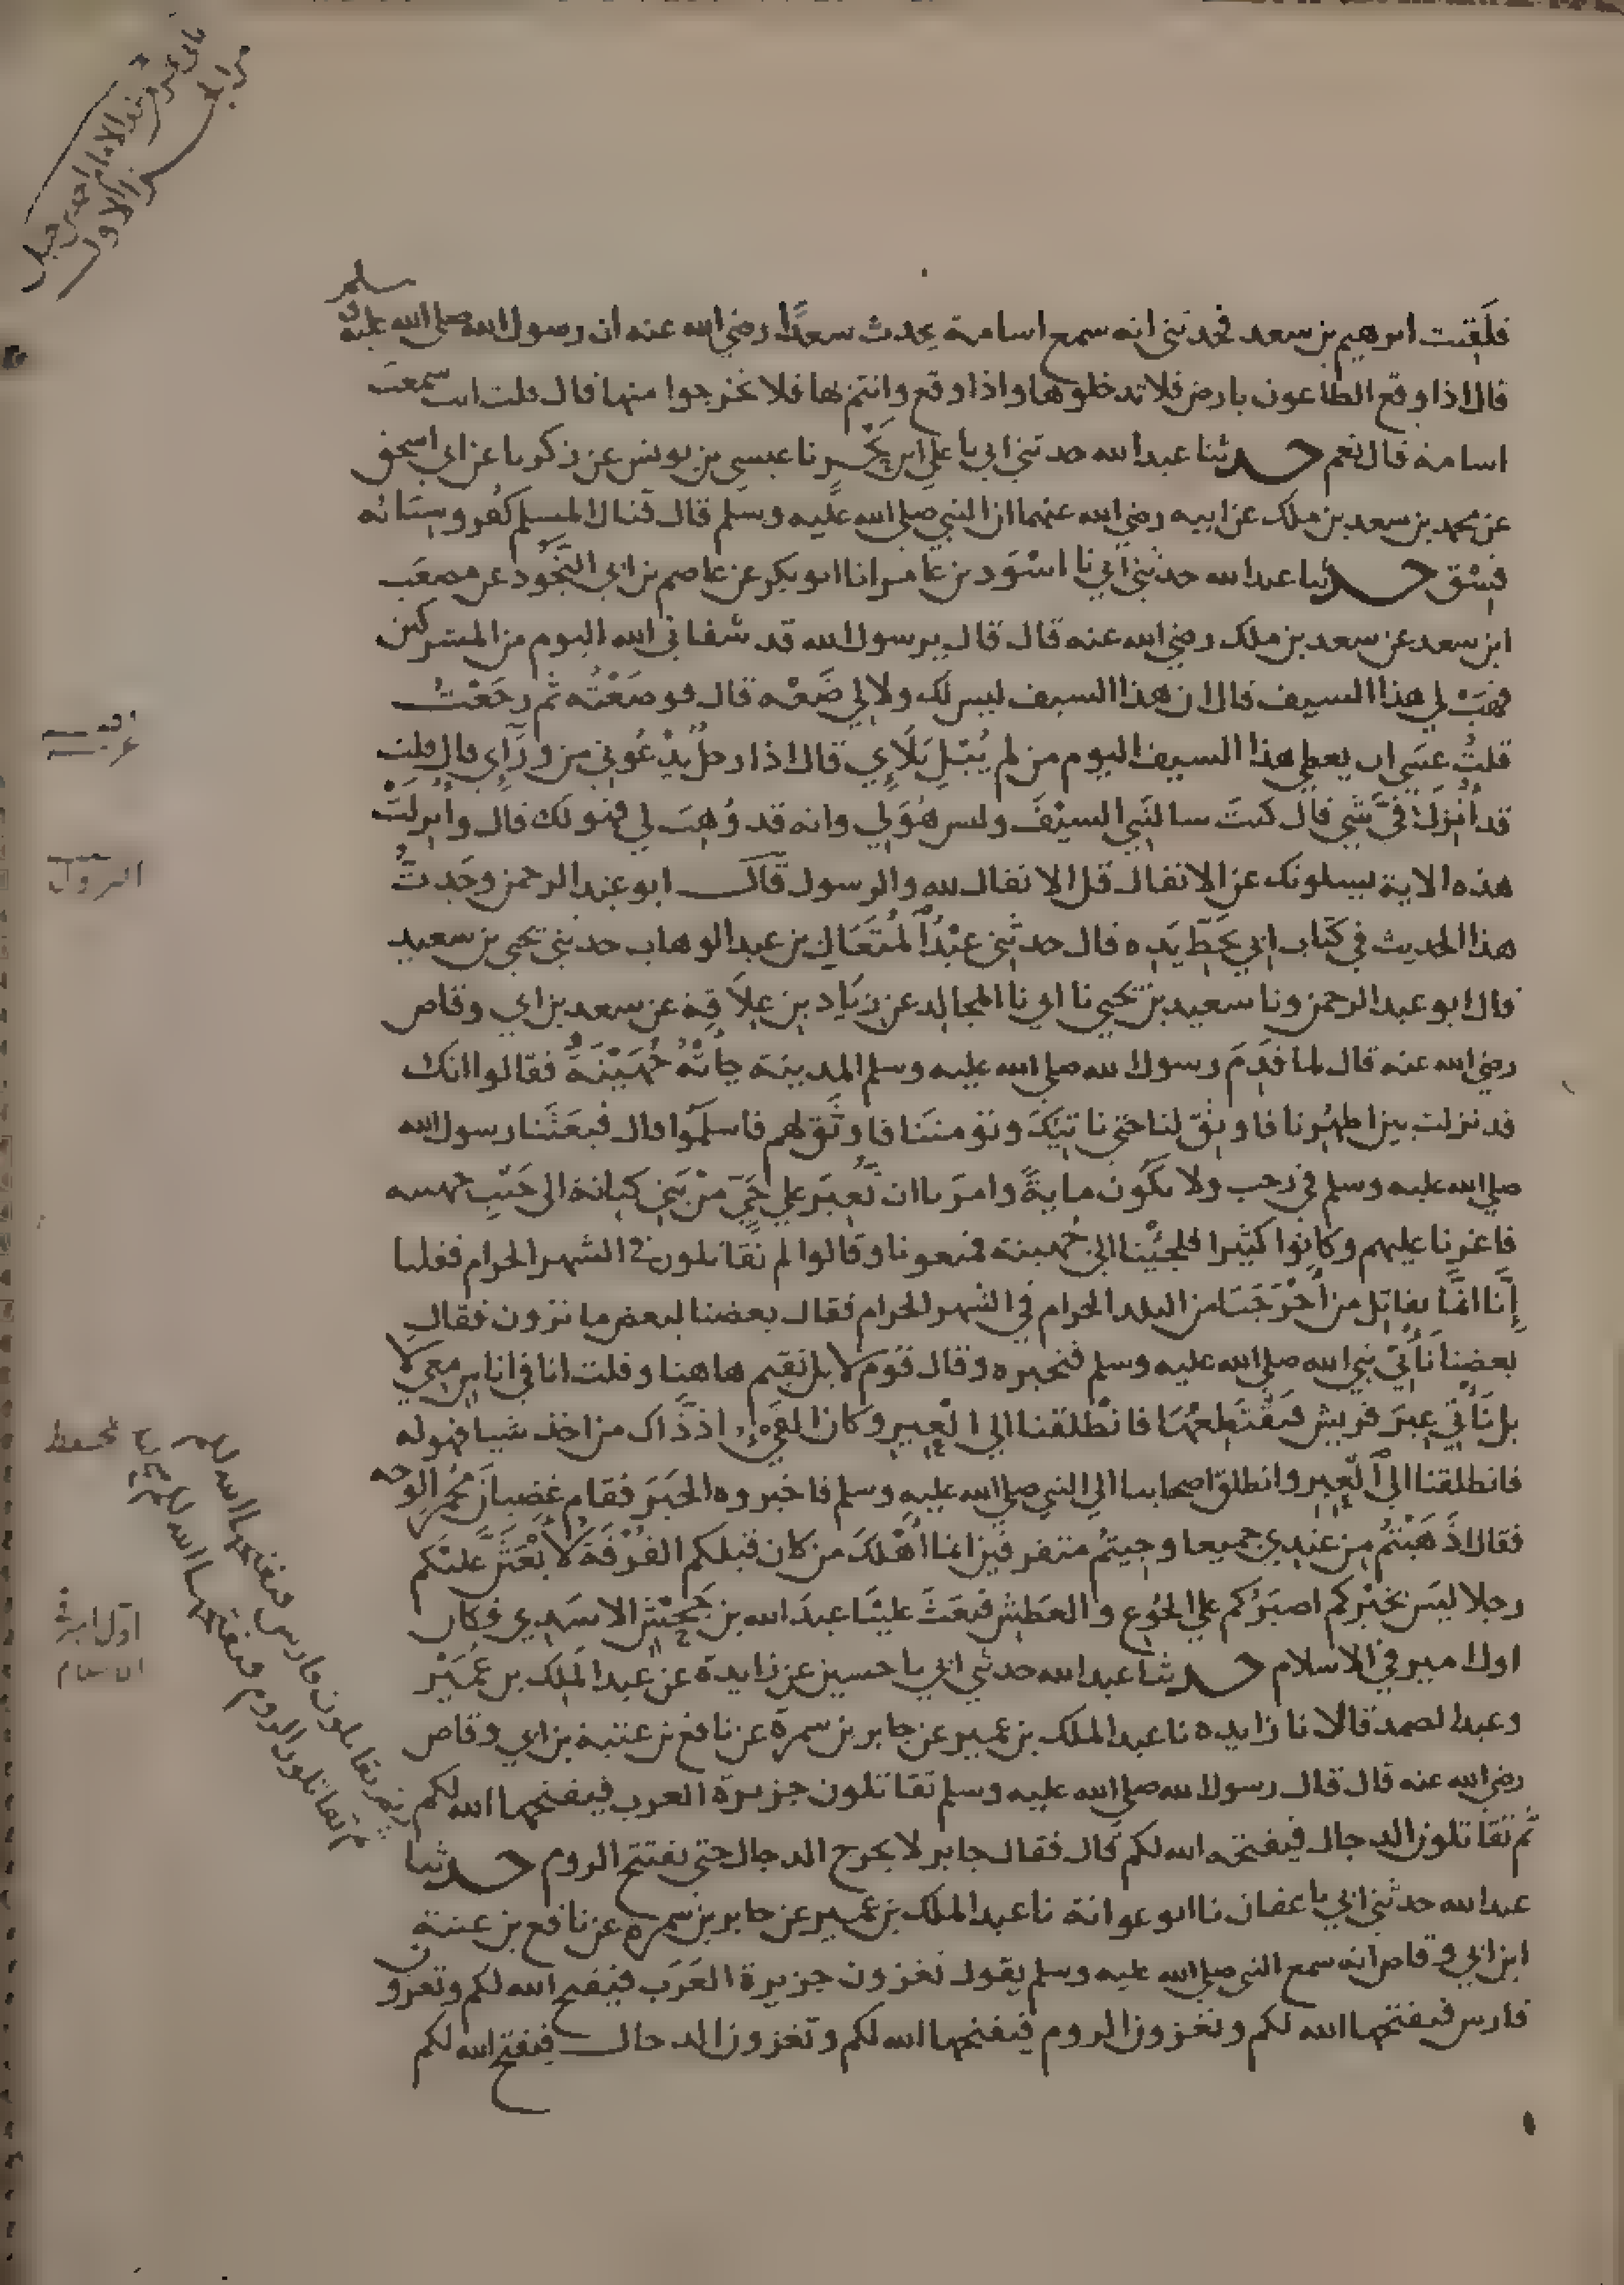 فلقيت ابرهيم بن سعد فحدثني انه سمع اسامة يحدث سعدًا رضي الله عنه ان رسول الله صلى الله عليه وسلم
قال اذا وقع الطاعون بارض فلا تدخلوها واذا وقع وانتم بها فلا تخرجوا منها قال قلت انت سمعت
اسامة قال نعم حدثنا عبد الله حدثني ابي نا علي ابن بَحْر نا عيسى بن يونس عن زكريا عن ابي اسحق
عن محمد بن سعد بن ملك عن ابيه رضي الله عنهما ان النبي صلى الله عليه وسلم قال قتال المسلم كفر وسبابه
فِسْق حدثنا عبد الله حدثني ابي نا اسْوَد بن عامر انا ابو بكر عن عاصم بن ابي النَّجُود عن مصعَب
ابن سعد عن سعد بن ملك رضي الله عنه قال قال يرسول الله قد شفاني الله اليوم من المشركين
فهَبْ لي هذا السيف قال ان هذا السيف ليس لك ولا لي ضَعْه قال فوضَعْتُه ثم رجَعْتُ
قلتُ عسَى ان يعطى هذا السيف اليوم من لم يُبْلِ بَلَاِي قال اذا رجلٌ يدْعُوني من ورَاِي قال قلت
قد اُنْزِلَ فيَّ شَي قال كنتَ سالتَني السيْفَ وليس هُوَ لي وانه قد وُهِبَ لي فهو لك قال واُنزِلَتْ
هذه الاية يسلونك عن الانفال قل الانفال لله والرسول قَال ابو عبد الرحمن وجَدتُ
هذا الحديث في كتاب ابي بخَطِّ يَدِه قال حدثني عبْدُ المُتَعَالِ بن عبد الوهاب حدثني يحيى بن سعيد
قال ابو عبد الرحمن ونا سعيد بن يحيى نا ابي نا المجالد عن زِيَاد بن عِلَاقة عن سعد بن ابي وقاص
رضي الله عنه قال لما قدِمَ رسول الله صلى الله عليه وسلم المدينة جاتْهُ جُهَيْنَةُ فقالوا انك
قد نزلت بين اظهُرنا فاوثِق لنا حتى ناتيَكَ وتؤمننَا فاوثَق لهم فاسلمُوا قال فبعَثَنا رسول الله
صلى الله عليه وسلم في رَجب ولا نكُون مايةً وامرَنا ان نُغِيرَ على حَيٍّ منْ بَني كنانة الى جَنْبِ جهينه
فاغرنا عليهم وكانُوا كثيرا فلجئْنا الى جُهينة فمنعونا وقالوا لم تُقاتلون في الشهر الحرام فقلنا
إنَّا انمَّا نقاتِل من اخْرَجَنا من البلد الحرام في الشهر الحرام فقال بعضنا لبعض ما ترون فقال
بعضنا نَأتي نبي الله صلى الله عليه وسلم فنخبره وقال قوم لا بل نقيم هاهنا وقلت انا في اناس معي لا
بل نَأتي عِيرَ قريش فنَقْتَطِعُهَا فانْطَلقنا الى العِيرِ وكان الفَيْءُ اذ ذَاك من اخذ شيا فهو له
فانطلقنا الى العِيرِ وانطلق اصحابنا الى النبي صلى الله عليه وسلم فاخبروه الخبَرَ فقام غضبانَ مُحْمَر الوجه
فقال اذَهَبْتُم من عندي جميعا وجيتُم متفرقين انما اَهْلكَ من كان قبلكم الفُرْقَة لابْعَثَنَّ عليْكم
رجلا ليسَ بخيْركم اصبَرُكم على الجُوع والعطش فبعَثَ عليْنا عبدَ الله بن جَحْشٍ الاسَدِي فكان
اول امير في الاسلام حدثنا عبد الله حدثني ابي نا حسين عن زايدة عن عبد الملك بن عُمَيْر
وعبد الصمد قالا نا زايده نا عبد الملك بن عمير عن جابر بن سمرة عن نافع بن عتبة بن ابي وقاص
رضي الله عنه قال قال رسول الله صلى الله عليه وسلم تقاتلون جزيرة العرب فيفتحها الله لكم
ثم تقاتلون الدجال فيفتحه الله لكم قال فقال جابر لا يخرج الدجال حتى يفتتح الروم حدثنا
عبد الله حدثني ابي نا عفان نا ابو عوانة نا عبد الملك بن عمير عن جابر بن سمرة عن نافع بن عتبة
ابن ابي وقاص انه سمع النبي صلى الله عليه وسلم يقول تغزون جزيرة العَرَب فيفتح الله لكم وتغزو
فارس فيفتحها الله لكم وتغزون الروم فيفتحها الله لكم وتغزون الدجال فيفتح الله لكم
مسند الامام احمد بن حنبل
اول امير في
الاسلام
ثم تقاتلون فارس فيفتحها الله لكم
ثم تقاتلون الروم فيفتحها الله لكم